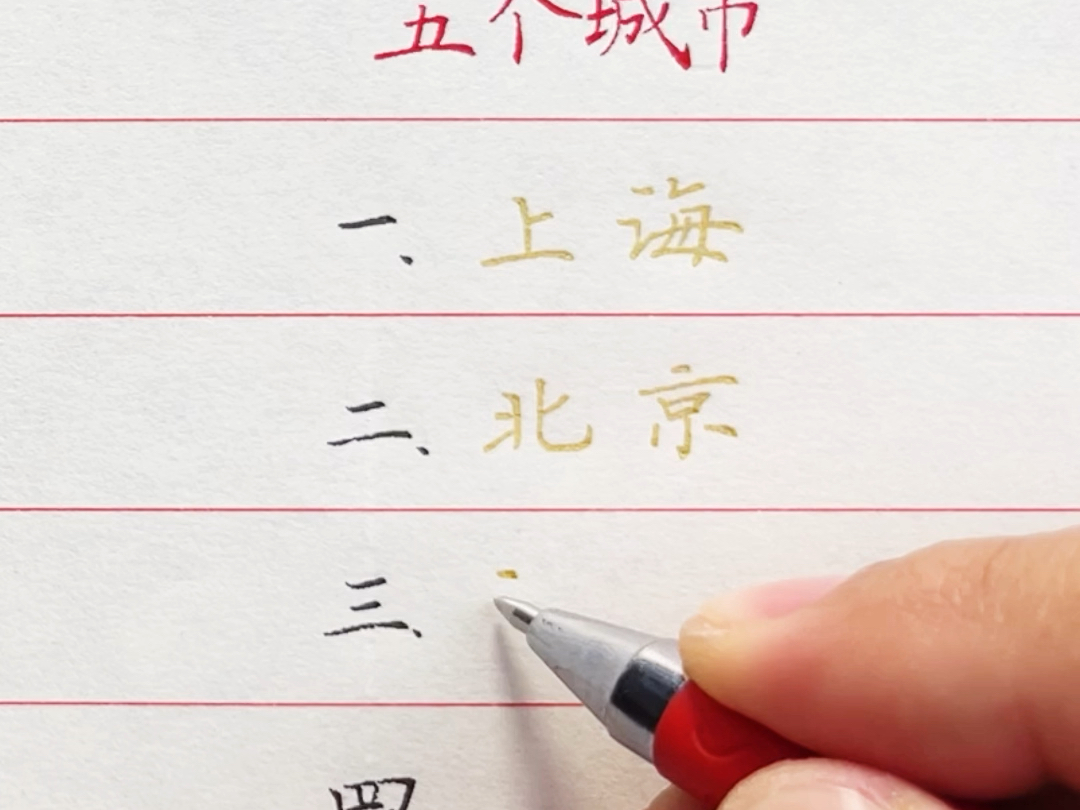 五个城市
一、上海
二、北京
三、
四